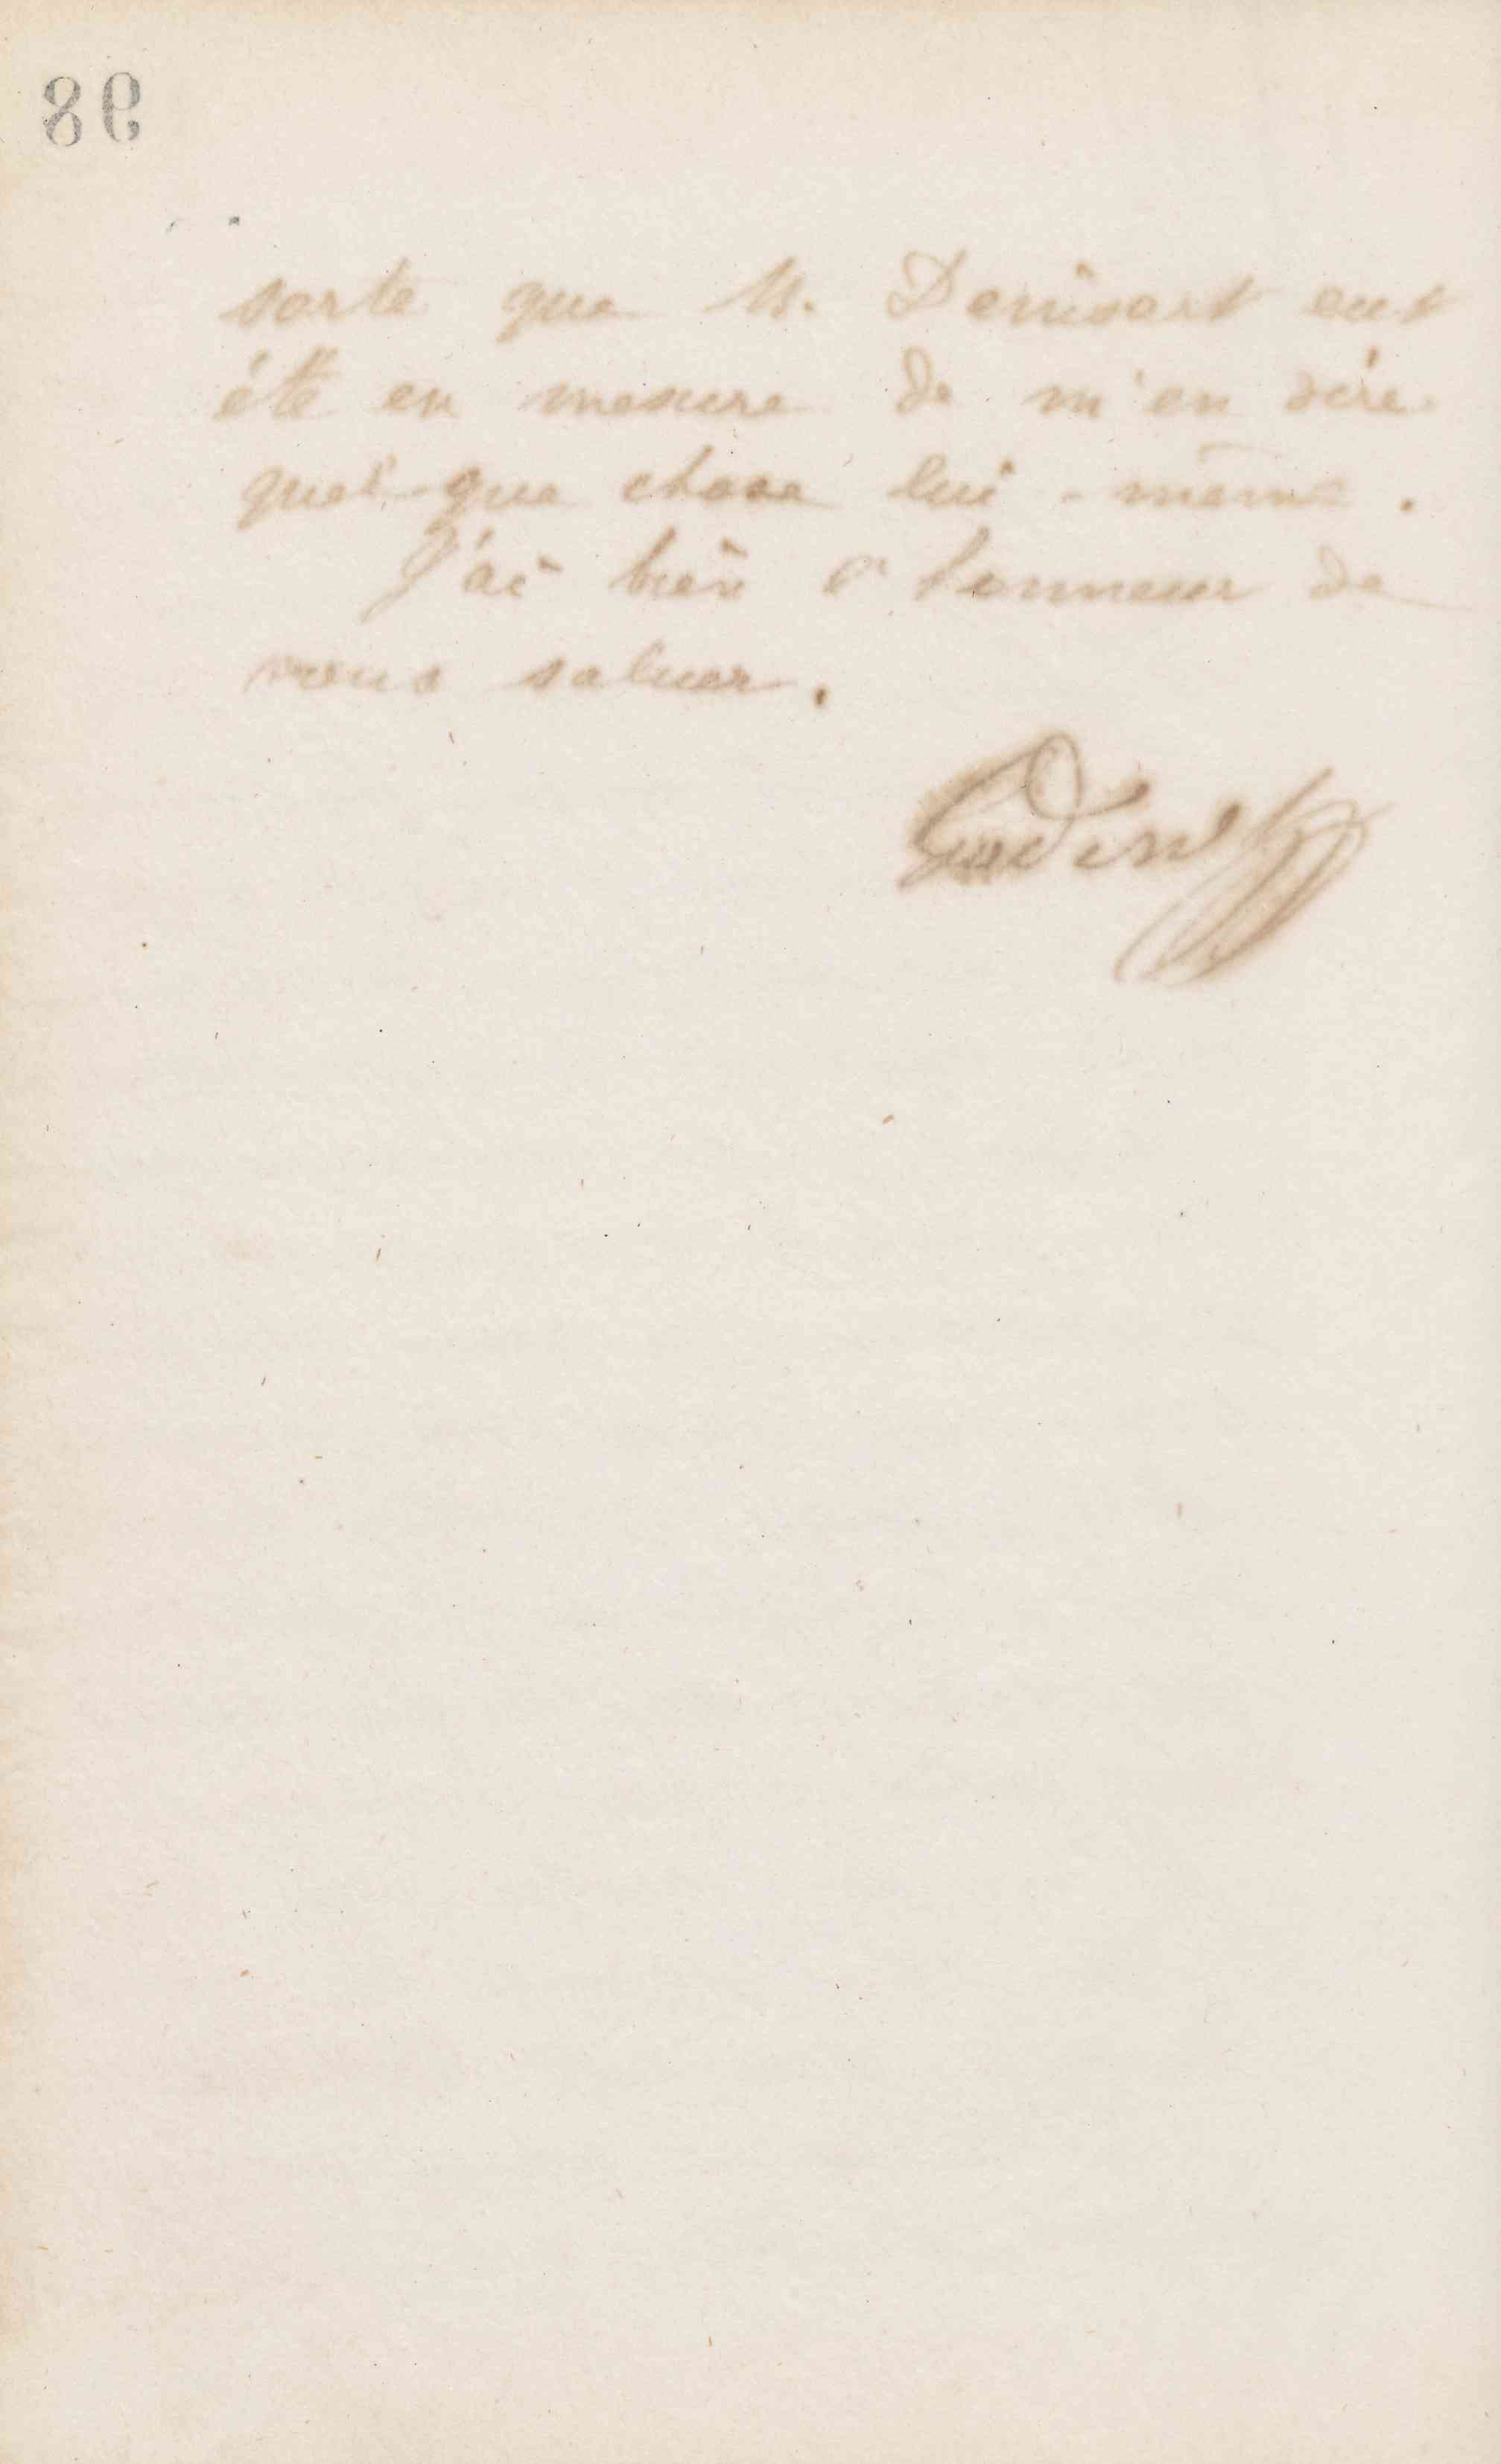 98
sorte que M. Denisart eut
été en mesure de m'en dire
quel-que chose lui-même.
J'ai bien l'honneur de
vous saluer.
Godin